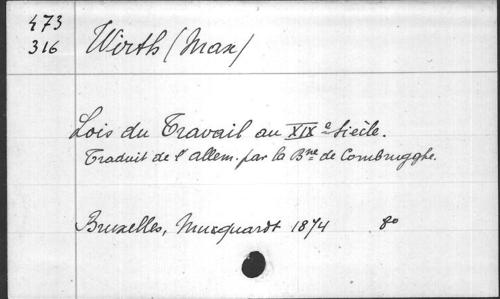 473
316
Wirth (Max)
Lois du Travail au XIXe Siècle.
Traduit de l'allem. par la Bne de Combrugghe.
Bruxelles, Muquardt 1874 8o